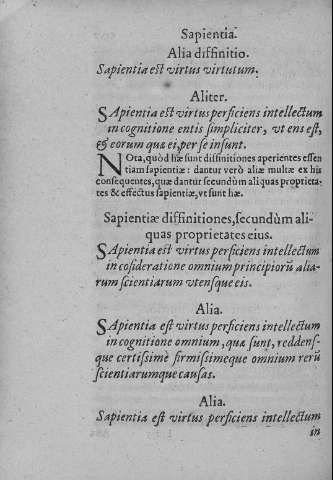 Sapientia.
Alia diffinitio.
Sapientia est virtus virtutum.
Aliter.
SApientia est virtus perficiens intellectum
in cognitione entis simpliciter, vt ens est,
& eorum quæ ei, per se insunt.
NOta, quòd hæ sunt diffinitiones aperientes essen
tiam sapientiæ: dantur verò aliæ multæ ex his
consequentes, quæ dantur secundùm aliquas proprieta-
tes & effectus sapientiæ, vt sunt hæ.
Sapientiæ diffinitiones, secundùm ali-
quas proprietates eius.
SApientia est virtus perficiens intellectum
in cõsideratione omnium principiorũ alia-
rum scientiarum vtensque eis.
Alia.
SApientia est virtus perficiens intellectum
in cognitione omnium, quæ sunt, reddens-
que certissimè firmissimeque omnium rerũ
scientiarumque causas.
Alia.
Sapientia est virtus perficiens intellectum
in